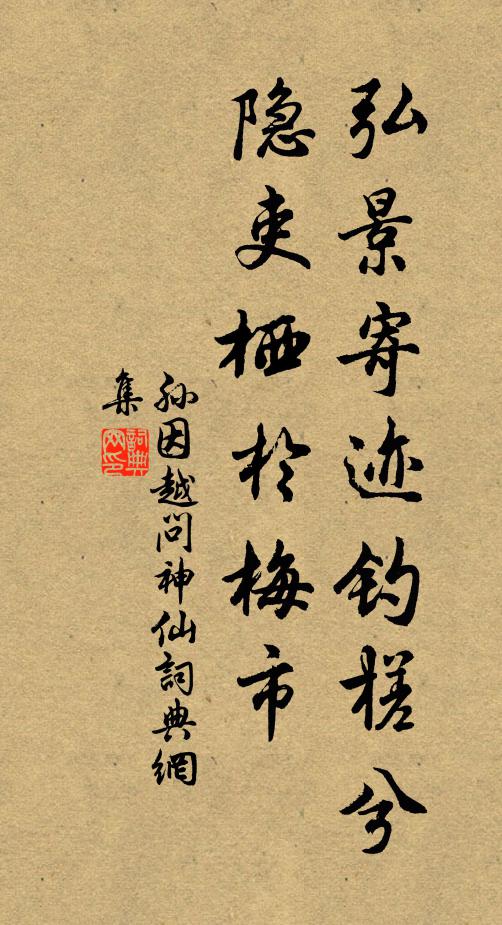 弘景寄迹钓槎兮
隐吏栖於梅市
孙因越问神仙詞典網
集
詞典网印